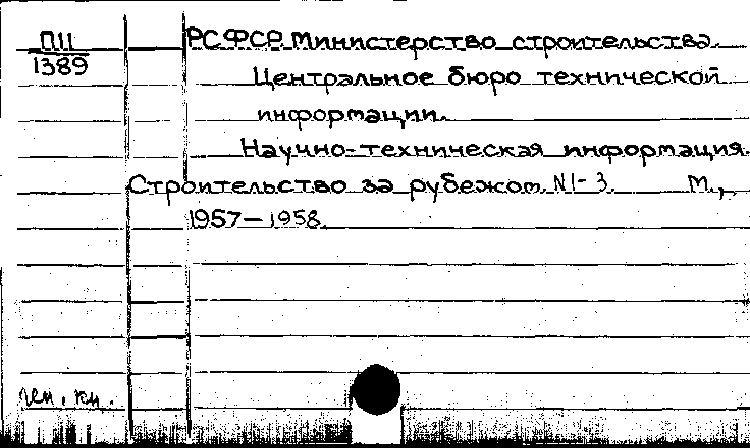 П11
1389
РСФСР. Министерство строительства.
Центральное бюро технической
информации.
Научно-техническая информация.
Строительство за рубежом. N1-3. М.,
1957-1958.
ген. кн.